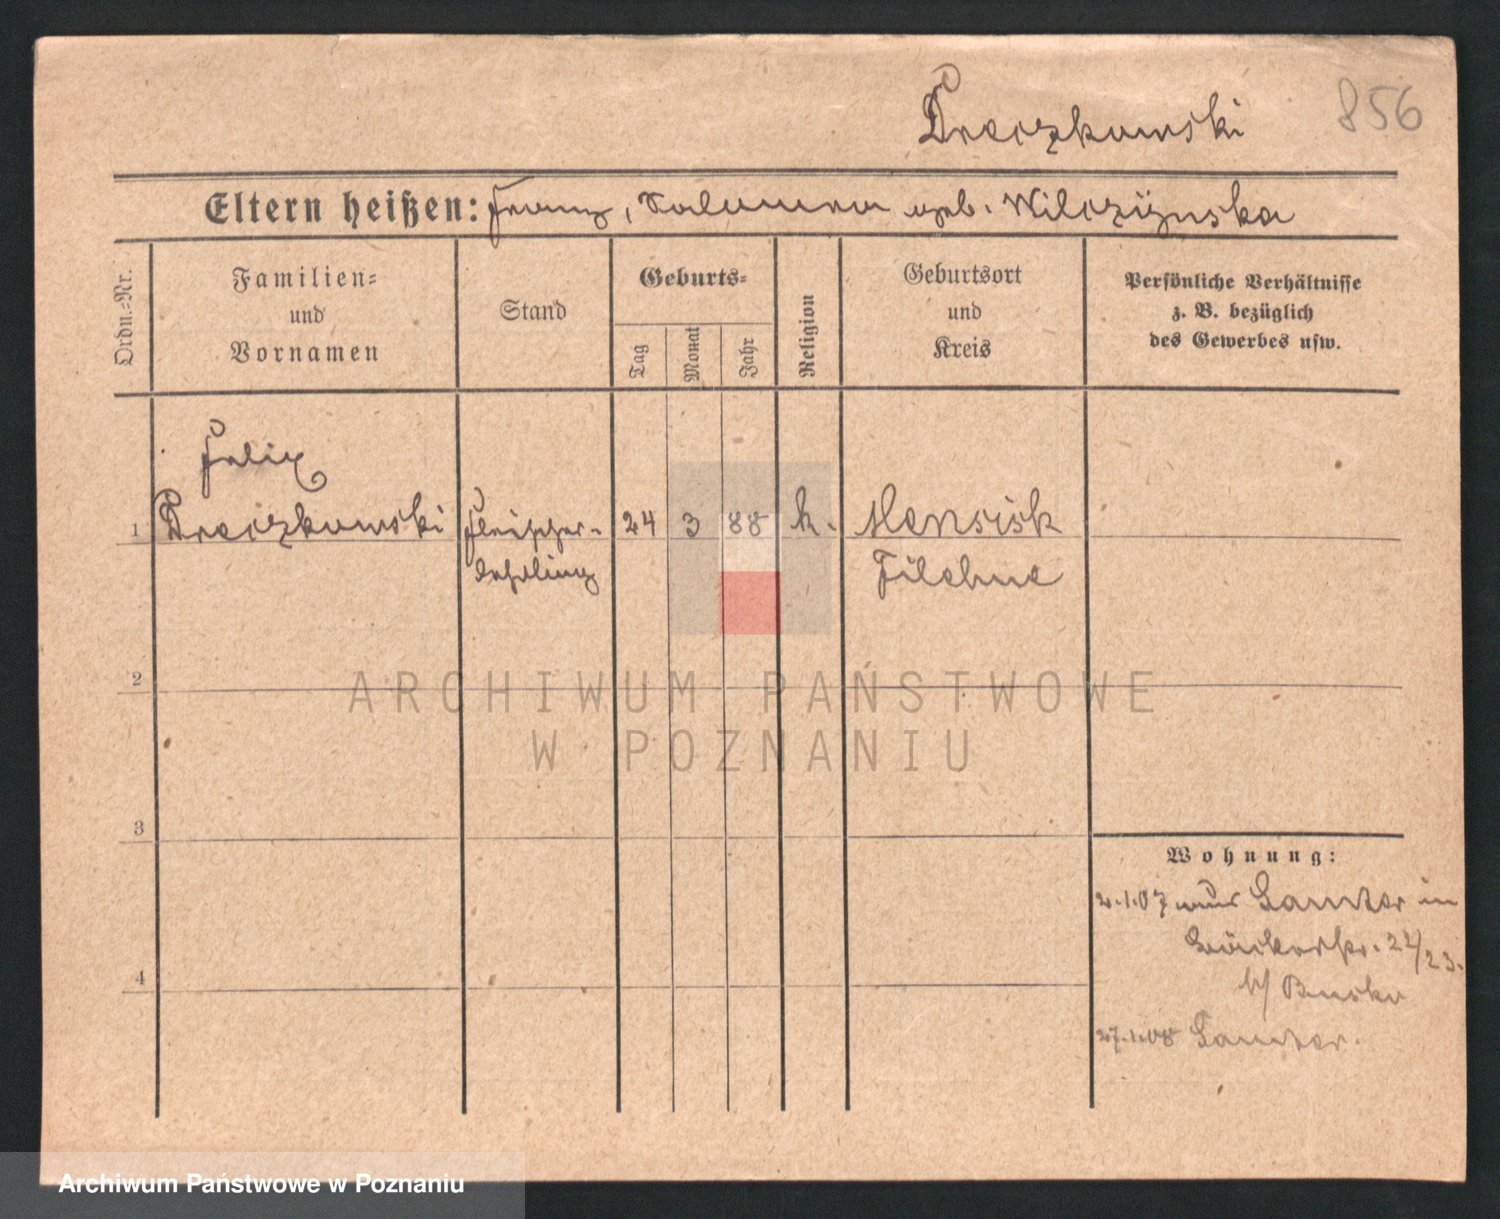 856
Dreczkowski
Eltern heißen: Franz, Salomea geb. Wilczyńska
Ordn.-Nr.
Familien- und Vornamen
Stand
Geburts-
Tag
Monat
Jahr
Religion
Geburtsort und Kreis
Persönliche Verhältnisse z. B. bezüglich des Gewerbes usw.
Felix
1 Dreczkowski Fleischer- 24 3 88 k.
lehrling Filehne
2
3
4
Wohnung:
2.1.07 aus Samter in
22/23.
b/
27.1.08 Samter.
ARCHIWUM PAŃSTWOWE
W POZNANIU
Archiwum Państwowe w Poznaniu